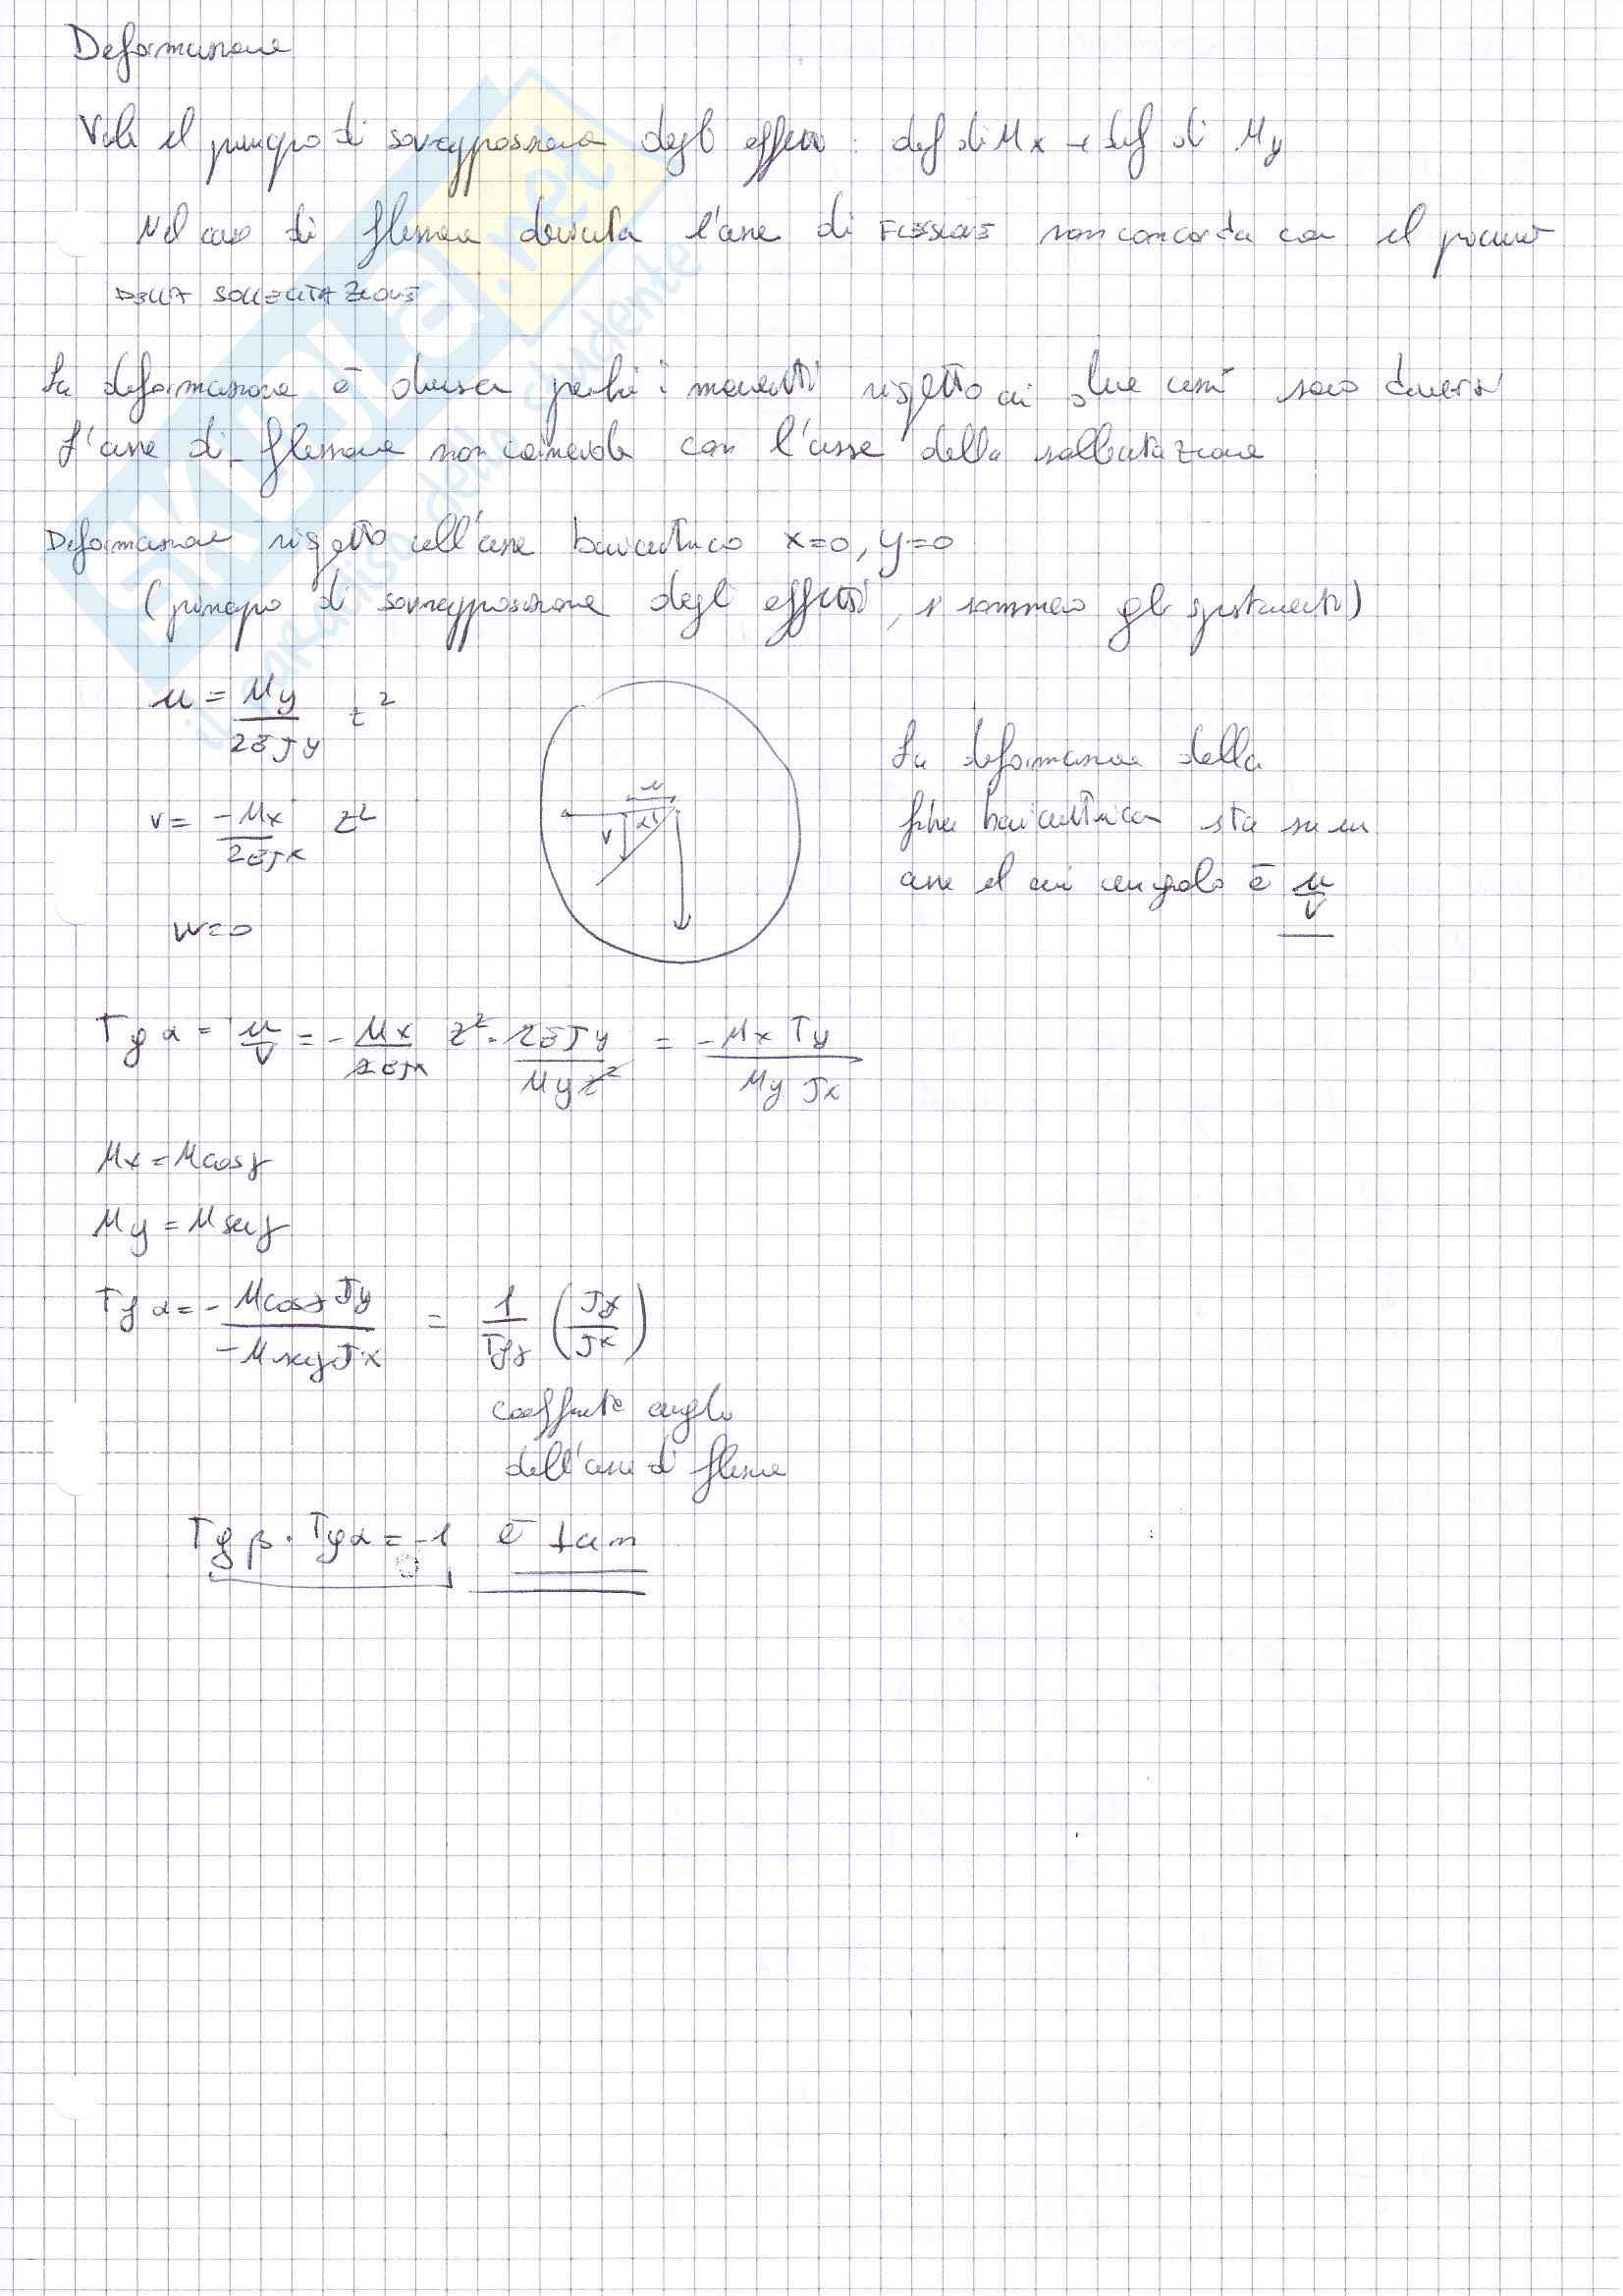 Deformazione
Vale il principio di sovrapposizione degli effetti : def di Mx + def di My
Nel caso di flessione deviata l'asse di FLESSIONE non concorda con il piano
DELLA SOLLECITAZIONE
La deformazione è diversa perché i momenti rispetto ai due assi sono diversi
L'asse di flessione non coincide con l'asse della sollecitazione
Deformazione rispetto all'asse baricentrico x=0, y=0
(principio di sovrapposizione degli effetti, si sommano gli spostamenti)
u = My / 2EJy z²
v = -Mx / 2EJx z²
w=0
u
v
α
La deformazione della
fibra baricentrica sta su un
asse il cui angolo è u/v
Tg α = u/v = - Mx / 2EJx z² · 2EJy / My z² = -Mx Jy / My Jx
Mx = M cos γ
My = M sen γ
Tg α = - M cos γ Jy / -M sen γ Jx = 1 / Tg γ (Jy / Jx)
dell'asse di
Tg β · Tg α = -1 è
il paradiso dello studente
SKUOLA.net